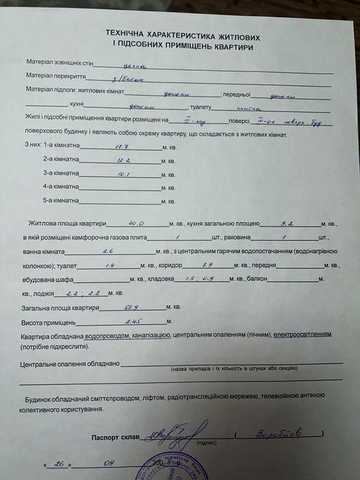 ТЕХНІЧНА ХАРАКТЕРИСТИКА ЖИТЛОВИХ
І ПІДСОБНИХ ПРИМІЩЕНЬ КВАРТИРИ
Матеріал зовнішніх стін
Матеріал перекриття з/бетон
Матеріал підлоги: житлових кімнат дошки, передньої дошки
, кухня дошки, туалету плитка
Жилі і підсобні приміщення квартири розміщені на поверсі
поверхового будинку і являють собою окрему квартиру, що складається з житлових кімнат.
З них: 1-а кімната м. кв.
2-а кімната 12.2 м. кв.
3-а кімната 10.1 м. кв.
4-а кімната м. кв.
5-а кімната м. кв.
Житлова площа квартири 40.0 м. кв., кухня загальною площею 9.2 м. кв.,
в якій розміщені камфорочна газова плита 1 шт., раковина 1 шт.,
ванна кімната 2.6 м. кв., з центральним гарячим водопостачанням (водонагрівною
колонкою); туалет м. кв., коридор м. кв., передня м. кв.,
вбудована шафа м. кв., кладовка м. кв., балкон м.
кв., лоджія 2.2, 2.2 м. кв.
Загальна площа квартири м. кв.
Висота приміщень 2.45 м.
Квартира обладнана водопроводом, каналізацією, центральним опаленням (пічним), електроосвітленням
(потрібне підкреслити).
Центральне опалення обладнано
(назва приладів і їх кількість в штуках або секціях)
Будинок обладнаний сміттєпроводом, ліфтом, радіотрансляційною мережею, телевізійною антеною
колективного користування.
Паспорт склав ( Воробйов )
(підпис)
" 26 " 04